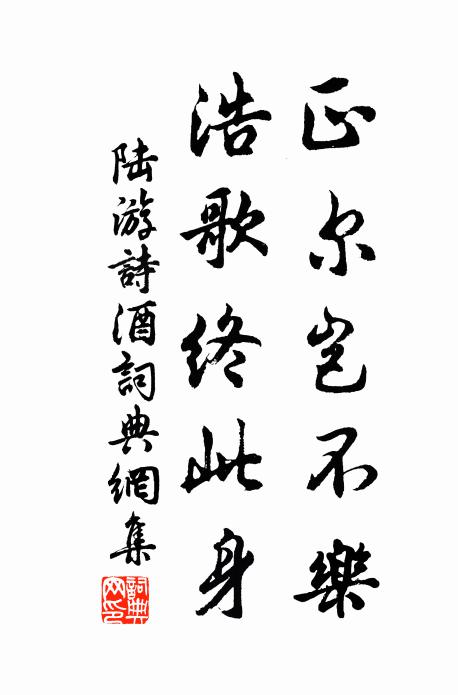 正尔岂不樂
浩歌終此身
陸游詩酒詞典網集
詞典网印